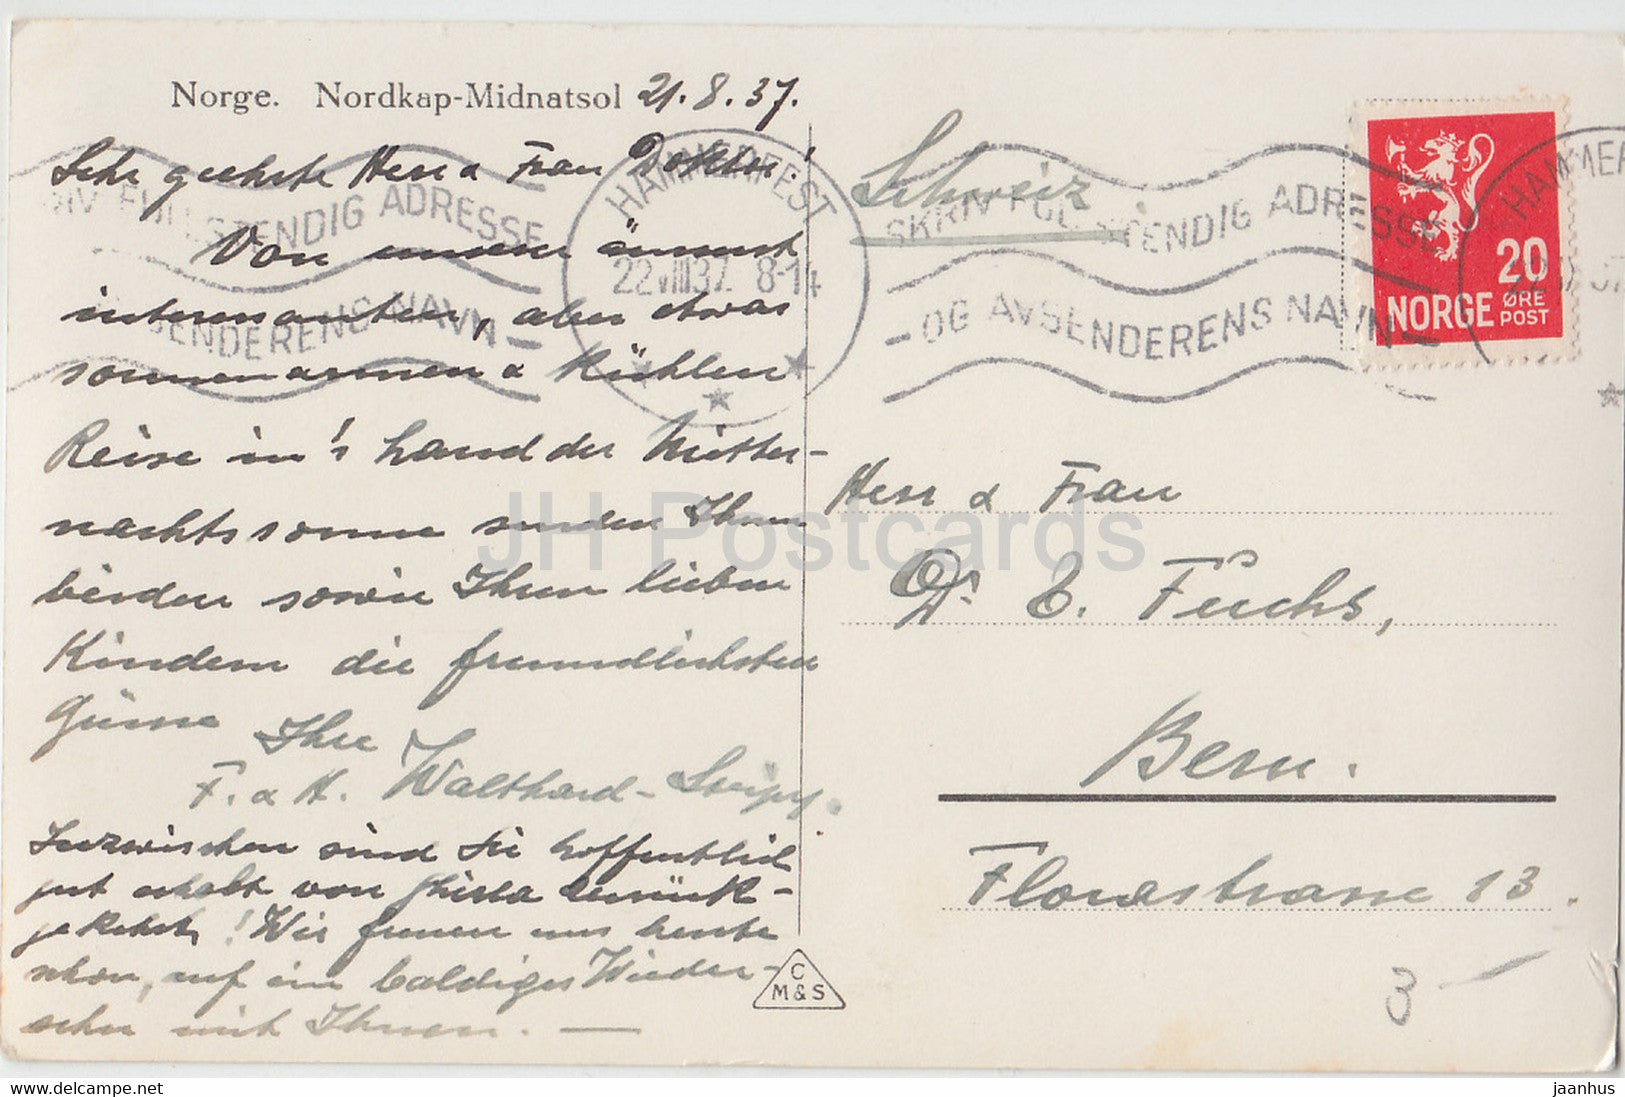 Norge. Nordkap-Midnatsol 21.8.37.
Sehr geehrte Herr & Frau Doktor!
Von unserer äusserst
interessanten, aber etwas
sonnenarmen & kühlen
Reise in's Land der Mitter-
nachtssonne senden Ihnen
beiden sowie Ihren lieben
Kindern die freundlichsten
Grüsse
Ihre
F. & H. Walthard-
Inzwischen sind Sie hoffentlich
gut erhalt von zurück-
gekehrt! Wir freuen uns heute
schon, auf ein baldiges Wieder-
sehn mit Ihnen. —
Schweiz.
Herr & Frau
Dr. E. Fuchs,
Bern.
Florastrasse 13.
3 -
HAMMERFEST
22 VIII 37 8-14
SKRIV FULLSTENDIG ADRESSE
- OG AVSENDERENS NAVN -
20
NORGE ØRE
POST
C
M&S
JH Postcards
delcampe.net
jaanhus